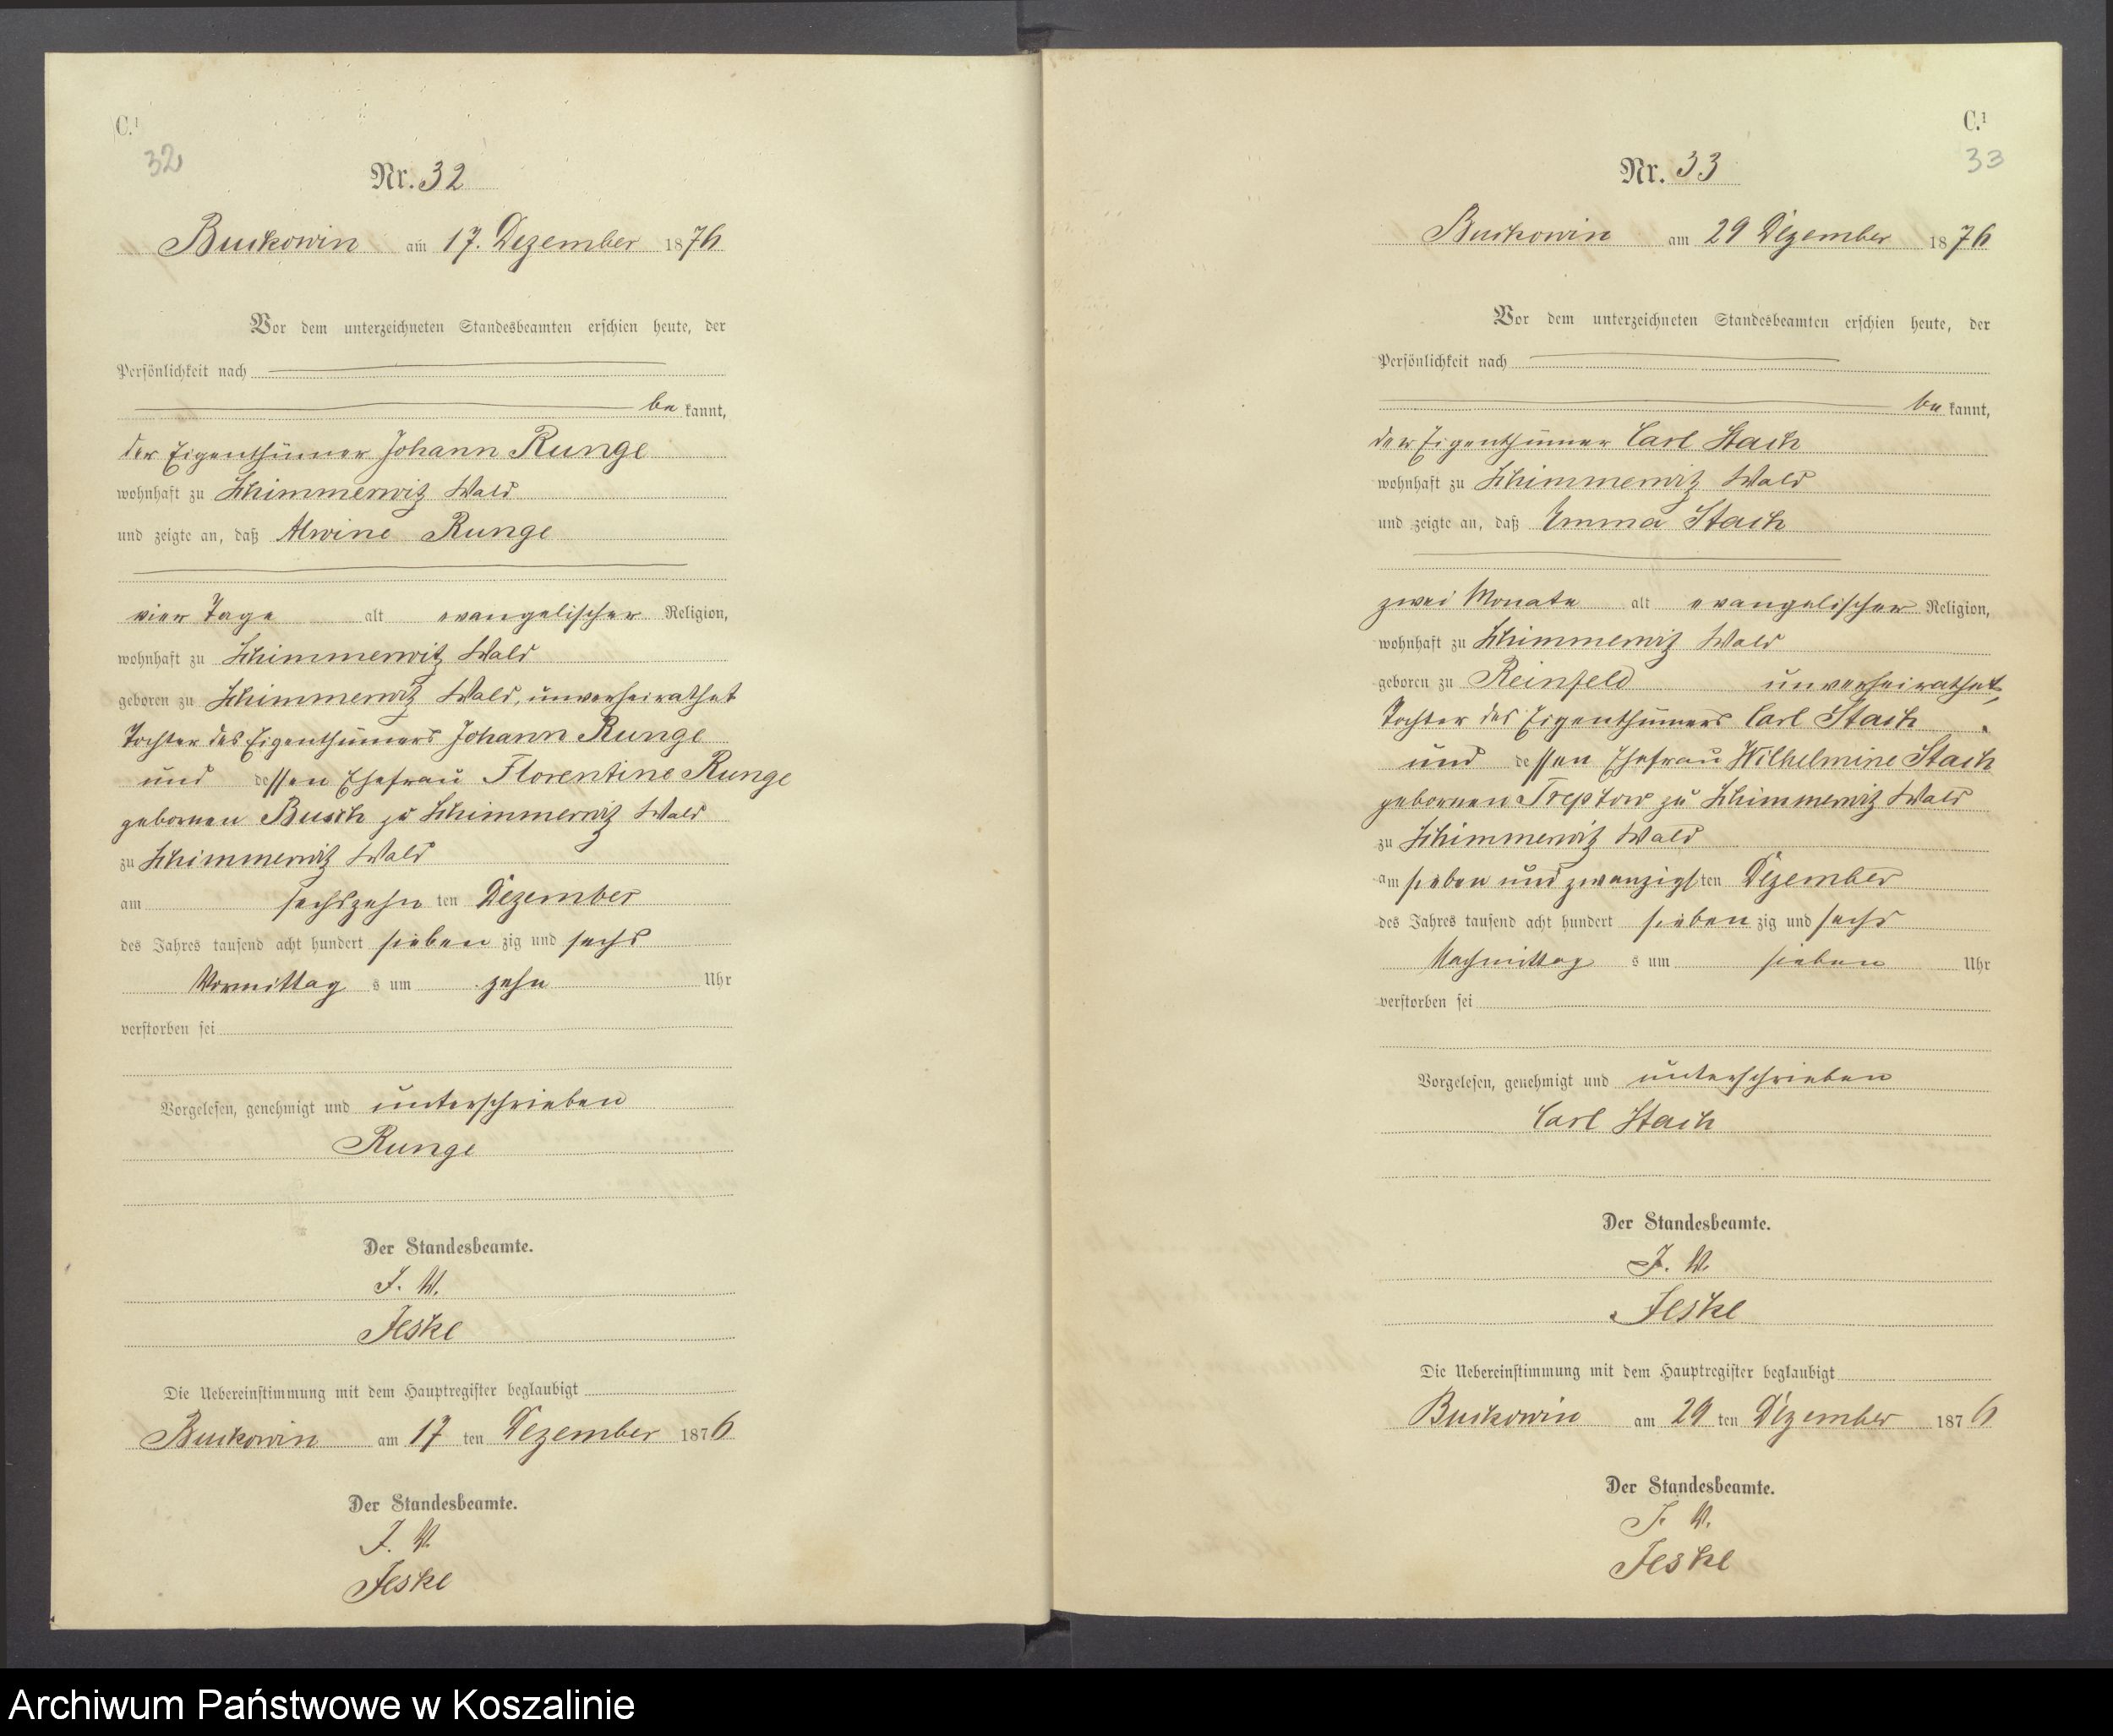 C.¹
32
Nr. 32
Buckowin am 17. Dezember 1876
Vor dem unterzeichneten Standesbeamten erschien heute, der
Persönlichkeit nach
be kannt,
der Eigenthümer Johann Runge
wohnhaft zu Schimmerwitz Wald
und zeigte an, daß Alwine Runge
vier Tage alt evangelischer Religion,
wohnhaft zu Schimmerwitz Wald
geboren zu Schimmerwitz Wald, unverheirathet
Tochter des Eigenthümers Johann Runge
und dessen Ehefrau Florentine Runge
gebornen Busch zu Schimmerwitz Wald
zu Schimmerwitz Wald
am sechszehn ten Dezember
des Jahres tausend acht hundert sieben zig und sechs
Vormittag s um zehn Uhr
verstorben sei
Vorgelesen, genehmigt und unterschrieben
Runge
Der Standesbeamte.
J. V.
Jeske
Die Uebereinstimmung mit dem Hauptregister beglaubigt
Buckowin am 17 ten Dezember 1876
Der Standesbeamte.
J. V.
Jeske
C.¹
33
Nr. 33
Buckowin am 29 Dezember 1876
Vor dem unterzeichneten Standesbeamten erschien heute, der
Persönlichkeit nach
be kannt,
der Eigenthümer Carl Stach
wohnhaft zu Schimmerwitz Wald
und zeigte an, daß Emma Stach
zwei Monate alt evangelischer Religion,
wohnhaft zu Schimmerwitz Wald
geboren zu Reinfeld unverheirathet,
Tochter des Eigenthümers Carl Stach
und dessen Ehefrau Wilhelmine Stach
gebornen Treptow zu Schimmerwitz Wald
zu Schimmerwitz Wald
am sieben und zwanzigsten Dezember
des Jahres tausend acht hundert sieben zig und sechs
Nachmittag s um sieben Uhr
verstorben sei
Vorgelesen, genehmigt und unterschrieben
Carl Stach
Der Standesbeamte.
J. V.
Jeske
Die Uebereinstimmung mit dem Hauptregister beglaubigt
Buckowin am 29 ten Dezember 1876
Der Standesbeamte.
J. V.
Jeske
Archiwum Państwowe w Koszalinie